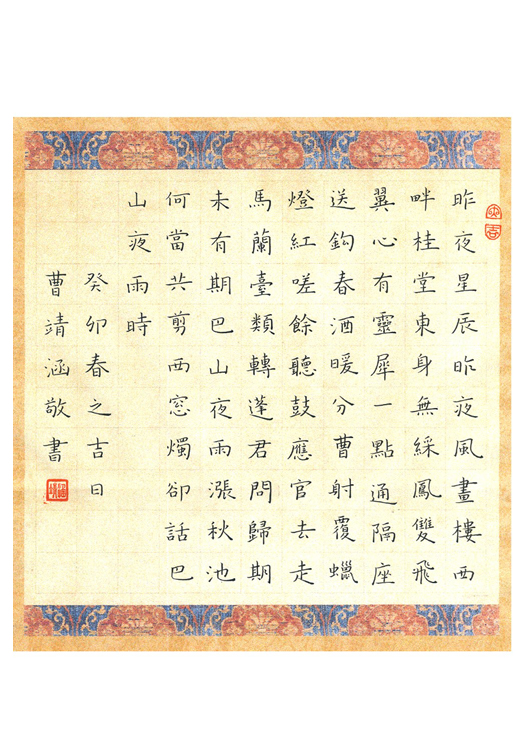 昨夜星辰昨夜風畫樓西
畔桂堂東身無綵鳳雙飛
翼心有靈犀一點通隔座
送鈎春酒暖分曹射覆蠟
燈紅嗟餘聽鼓應官去走
馬蘭臺類轉蓬君問歸期
未有期巴山夜雨漲秋池
何當共剪西窓燭卻話巴
山夜雨時
癸卯春之吉日
曹靖涵敬書